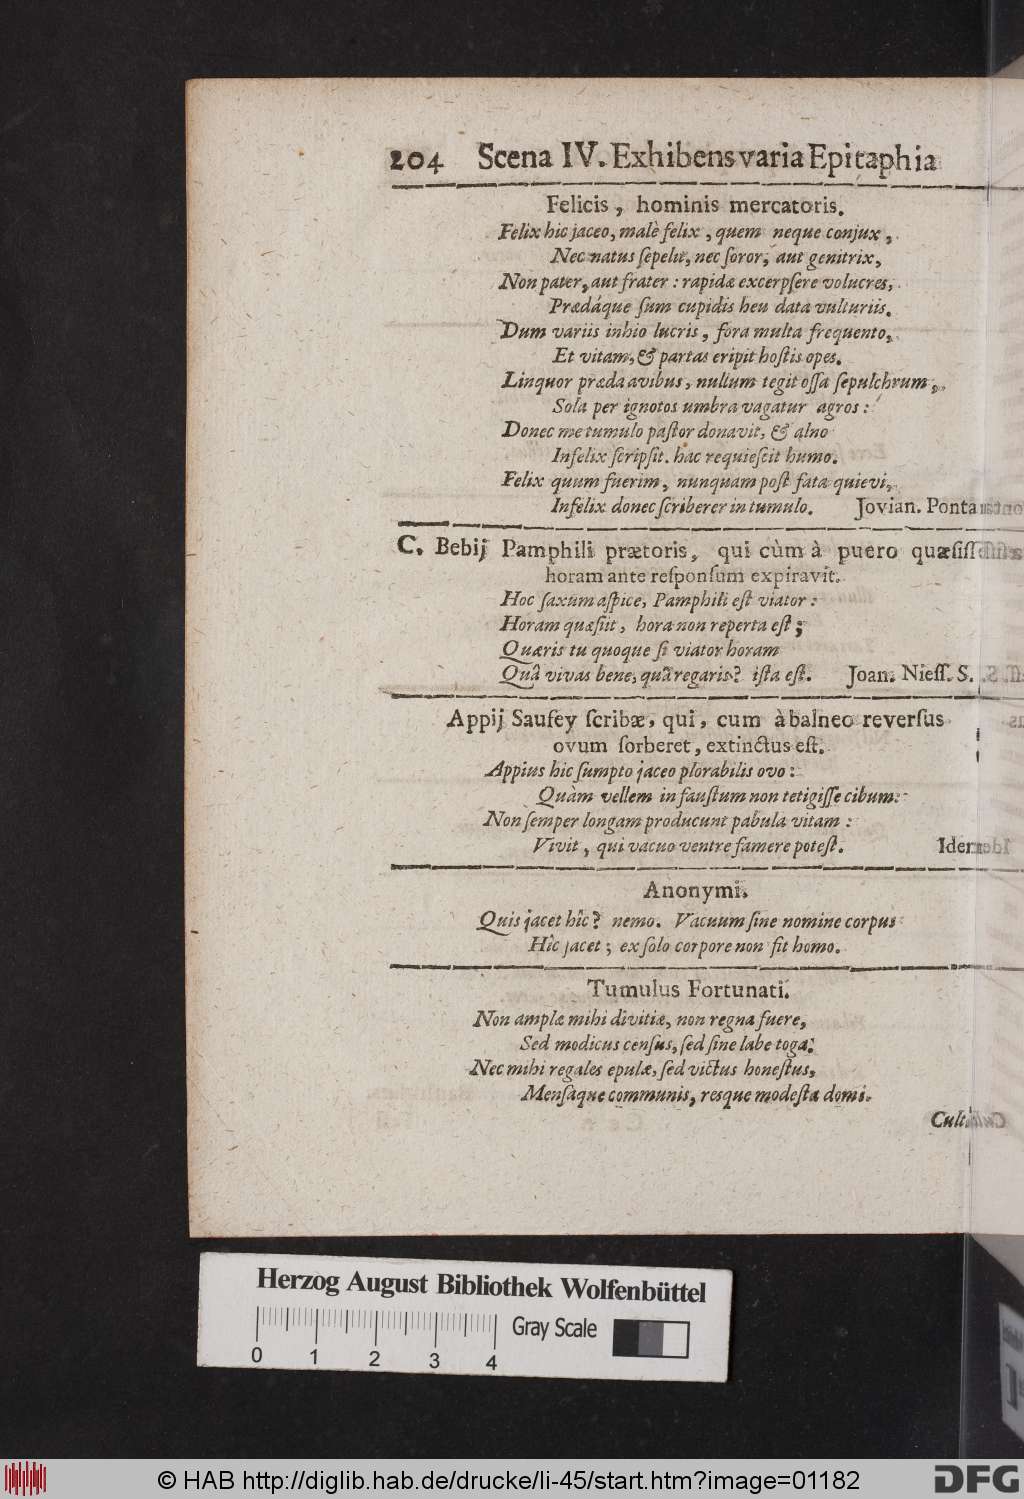 204 Scena IV. Exhibens varia Epitaphia
Felicis, hominis mercatoris.
Felix hic jaceo, malè felix, quem neque conjux,
Nec natus ſepelit, nec ſoror, aut genitrix,
Non pater, aut frater: rapidæ excerpſere volucres,
Prædáque ſum cupidis heu data vulturiis.
Dum variis inhio lucris, fora multa frequento,
Et vitam, & partas eripit hoſtis opes.
Linquor præda avibus, nullum tegit oſſa ſepulchrum,
Sola per ignotos umbra vagatur agros:
Donec me tumulo paſtor donavit, & alno
Infelix ſcripſit. hac requieſcit humo.
Felix quum fuerim, nunquam poſt fata quievi,
Infelix donec ſcriberer in tumulo. Jovian. Pontan
C. Bebij Pamphili prætoris, qui cùm à puero quæſiſſ
horam ante reſponſum expiravit.
Hoc ſaxum aſpice, Pamphili eſt viator:
Horam quæſiit, hora non reperta eſt;
Quæris tu quoque ſi viator horam
Quâ vivas bene, quâ regaris? iſta eſt. Joan. Nieſſ. S.
Appij Sauſey ſcribæ, qui, cum à balneo reverſus
ovum ſorberet, extinctus eſt.
Appius hic ſumpto jaceo plorabilis ovo:
Quàm vellem infauſtum non tetigiſſe cibum:
Non ſemper longam producunt pabula vitam:
Vivit, qui vacuo ventre famere poteſt. Idem
Anonymi.
Quis jacet hîc? nemo. Vacuum ſine nomine corpus
Hîc jacet; ex ſolo corpore non fit homo.
Tumulus Fortunati.
Non amplæ mihi divitiæ, non regna fuere,
Sed modicus cenſus, ſed ſine labe toga:
Nec mihi regales epulæ, ſed victus honeſtus,
Menſaque communis, resque modeſta domi.
Cult
Herzog August Bibliothek Wolfenbüttel
Gray Scale
0 1 2 3 4
© HAB http://diglib.hab.de/drucke/li-45/start.htm?image=01182
DFG